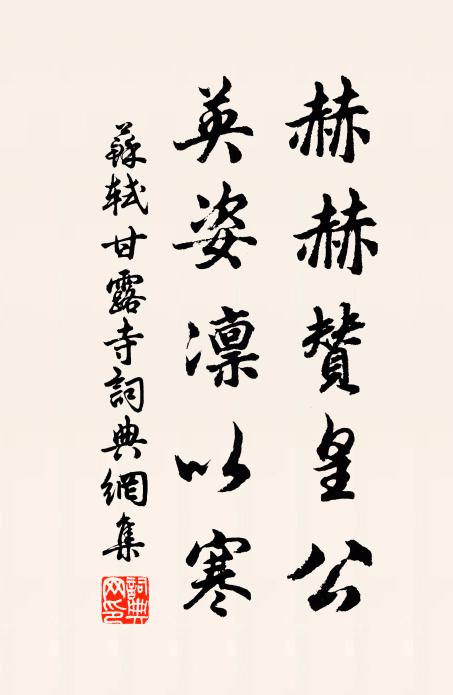 赫赫贊皇公
英姿凛以寒
蘇軾甘露寺詞典網集
詞典網印